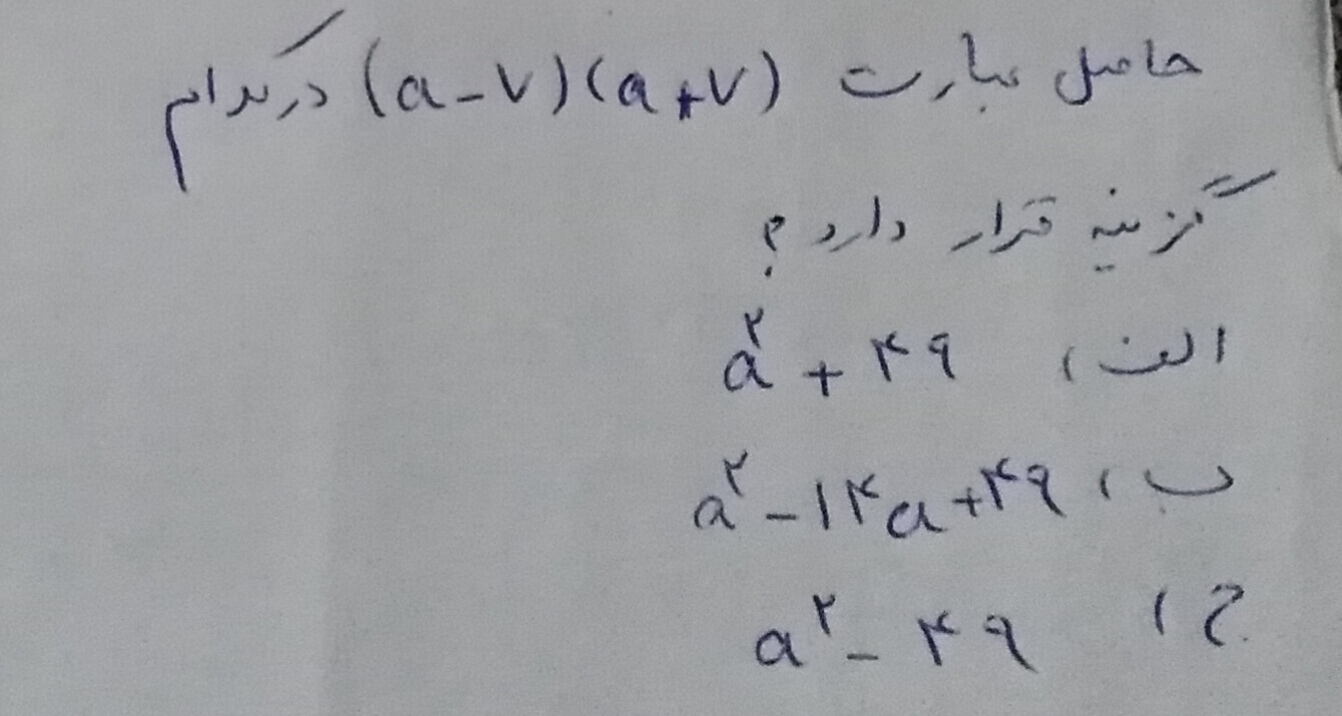 حاصل عبارت (a-۷)(a+۷) در کدام
گزینه قرار دارد؟
الف) a²+۴۹
ب) a²-۱۴a+۴۹
ج) a²-۴۹